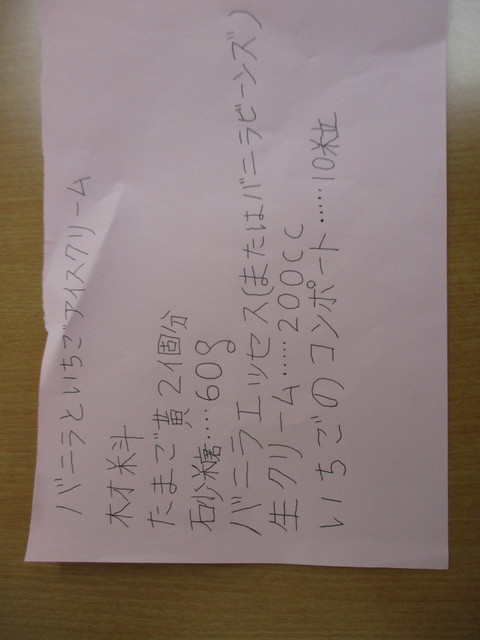 バニラといちごアイスクリーム
材料
たまご黄2個分
砂糖‥‥60g
バニラエッセス(またはバニラビーンズ)
生クリーム‥‥‥200CC
いちごのコンポート‥‥‥10粒